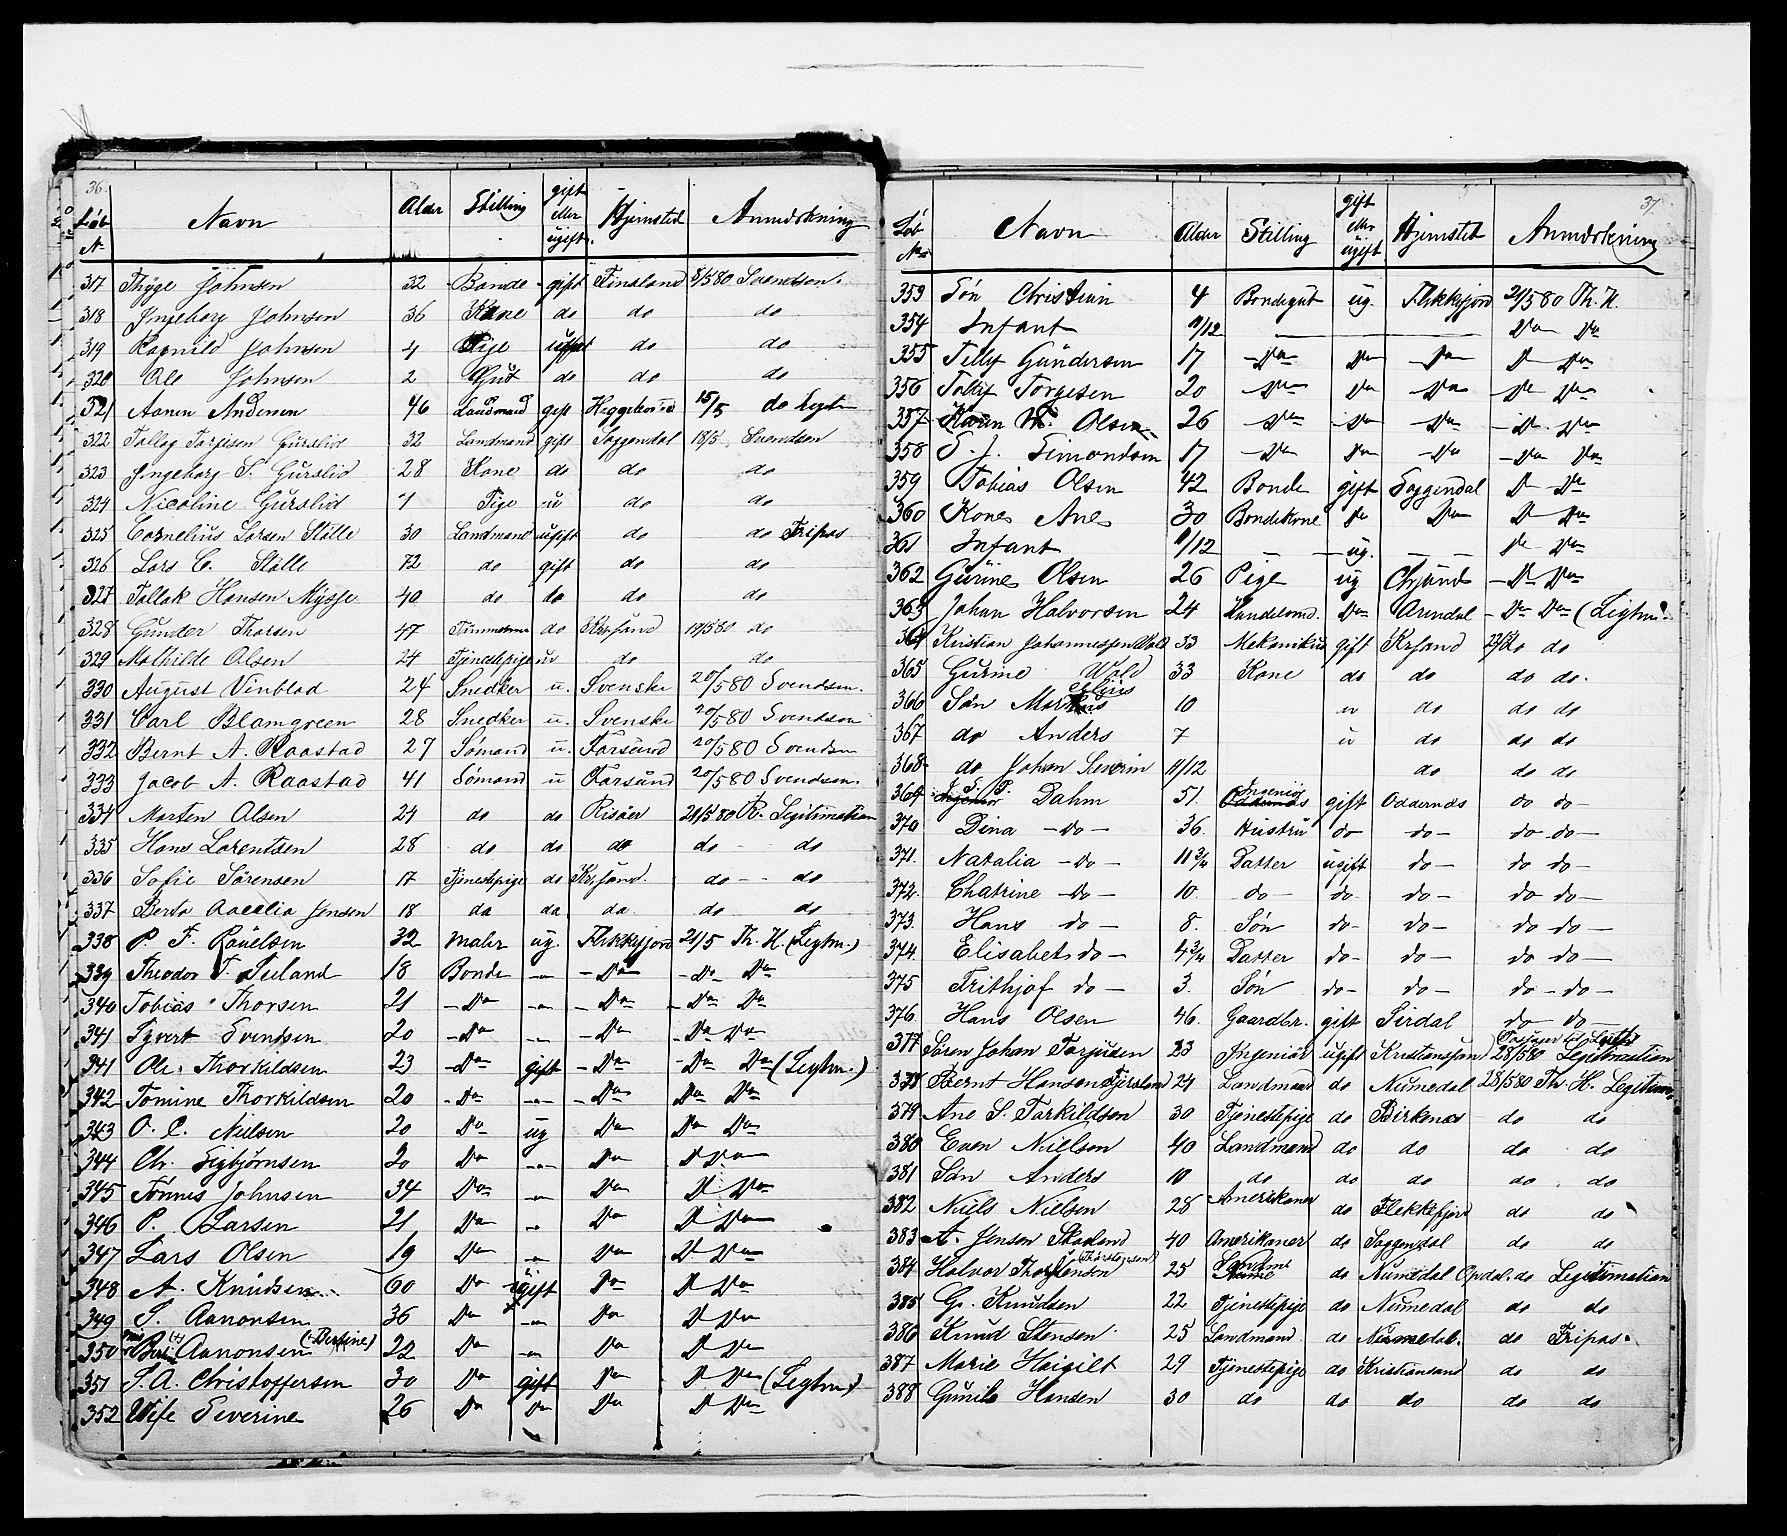 36.
Løb N. Navn Alder Stilling gift eller ugift. Hjemsted Anmærkning
317 Thyge Johnsen 32 Bonde gift Finsland 8/5 80 Svendsen.
318 Ingeborg Johnsen 36 Kone do do do
319 Ragnild Johnsen 4 Pige ugift do do
320 Ole Johnsen 2 Gut do do do
321 Aanen Andersen 46 Landmand gift 15/5 do
322 Tallag Torgisen Gurslid 32 Landmand gift Soggendal 18/5 Svendsen
323 Ingeborg T. Gurslid 28 Kone do do do
324 Nicoline Gurslid 1 Pige u do do
325 Cornelius Larsen Stølle 30 Landmand ugift do do Fripas
326 Lars C. Stølle 72 do gift do do
327 Tallak Hansen Mysse 40 do do do do
328 Gunder Thorsen 47 Tømmerm do Krsand 19/5 80 do
329 Mathilde Olsen 24 Tjenestepige u do do
330 August Vinblad 24 Snedker u. Svenske 20/5 80 Svendsen.
331 Carl Blomgreen 28 Snedker u. Svenske 20/5 80 Svendsen
332 Bernt A. Raastad 27 Sømand u. Farsund 20/5 80 Svendsen
333 Jacob A. Raastad 41 Sømand u Farsund 20/5 80 Svendsen.
334 Morten Olsen 24 do do Risøer 21/5 80 R. Legitimation
335 Hans Lorentsen 28 do do do do - do
336 Sofie Sørensen 17 Tjenestepige do Krsand. do - - do
337 Berta Jensen 18 do do do do do
338 P. F. Røuelsen 32 Maler ug. Flekkefjord 21/5 Th. H. (Legtm.)
339 Theodor T. Seiland 18 Bonde -"- - Do - Do Do
340 Tobias Thorsen 21 - Do -"- - Do - Do Do
341 Syvert Svendsen 20 - Do -"- - Do - Do Do
341 Ole Thorkildsen 23 - Do gift - Do - Do Do (Legtm.)
342 Tomine Thorkildsen 20 - Do -"- - Do Do Do
343 O. C. Nielsen 20 Do ug Do Do Do
344 Chr. Sigbjørnsen 20 Do -"- Do D Do
345 Tønnes Johnsen 34 Do -"- Do D Do
346 P. Larsen 21 Do -"- Do D Do
347 Lars Olsen 19 Do -"- Do D Do
348 A. Knudsen 60 Do ugift Do D Do
349 S. Aanonsen 36 Do -"- Do D Do
350 Aanonsen (Bertine) 22 Do -"- Do D Do
351 S. A. Christoffersen 30 Do gift Do D Do (Legtm)
352 Wife Severine 26 Do Do Do D Do
37.
Løb No Navn Alder Stilling gift eller ugift Hjemsted Anmærkning
353 Søn Christian 4 Bondegut ug. Flekkefjord 21/5 80 Th. H.
354 Infant 11/12 — — — Do Do
355 Tellef Gundersen 17 - Do Do - Do D Do
356 Tollef Torgesen 20 - Do Do - Do Do Do
357 Karen Olsen 26 - Do Do Do - Do Do
358 S. J. Simondsen 17 - Do Do - Do - Do Do
359 Tobias Olsen 42 Bonde gift Soggendal D Do
360 Kone Ane 30 Bondekone Do Do D Do
361 Infant 11/12 — ug. — Do Do
362 Gurine Olsen 26 Pige ug - Do Do
363 Johan Halvorsen 24 Handelsmd. Do Arendal - Do Do (Legtm.
364 Kristian Johannessen Wold 33 Mekanikus gift Krsand do do
365 Gurine Wold 33 Kone do do do do.
366 Søn 10 u do do do
367 do Anders 7 u do do do
368 do Johan Severin 11/12 do do do
369 J. S. P. Dahm 51. Ingeniør gift Oddernæs do do -
370 Dina - do - 36. Hustru do do - do do -
371. Natalia - do - 11 3/4 Datter ugift do - do do -
372 Chatrine - do - 10. do - do. do - do do -
373. Hans do - 8. Søn do - do - do do -
374. Elisabet do - 4 3/4 Datter do - do - do do -
375 Frithjof do - 3. Søn do - do - do - do -
376. Hans Olsen 46. Gaardbr. gift Sirdal do do -
377 Søren Johan Torjusen 23 Ingeniør ugift Kristianssan 28/5 80 Legitimation
378 Bernt Hansen 24 Landmand do Numedal 28/5 80 Th. H. Legitim.
379 Ane S. Torkildsen 30 Tjenestepige do Birkenæs do do
380 Even Niellsen 40 Landmand do do do do
381 Søn Anders 10 do do do do do
382 Niels Nielsen 28 Amerikaner do Flekkefjord do do
383 A. Jensen Skoland 40 Amerikaner do Soggendal do do
384 Halvor Thorstensen (Thorstensen) 25 Landm do Numedal Opdal. do Legitimation
385 G. Knudsen 22 Tjenestepige do Numedal do do
386 Knud Stensen 25 Landmand. do Numedal. do Fripas.
387 Marie 29 Tjenestepige do Kristiansand do do
388 Gunild Hansen 30 do do do do do